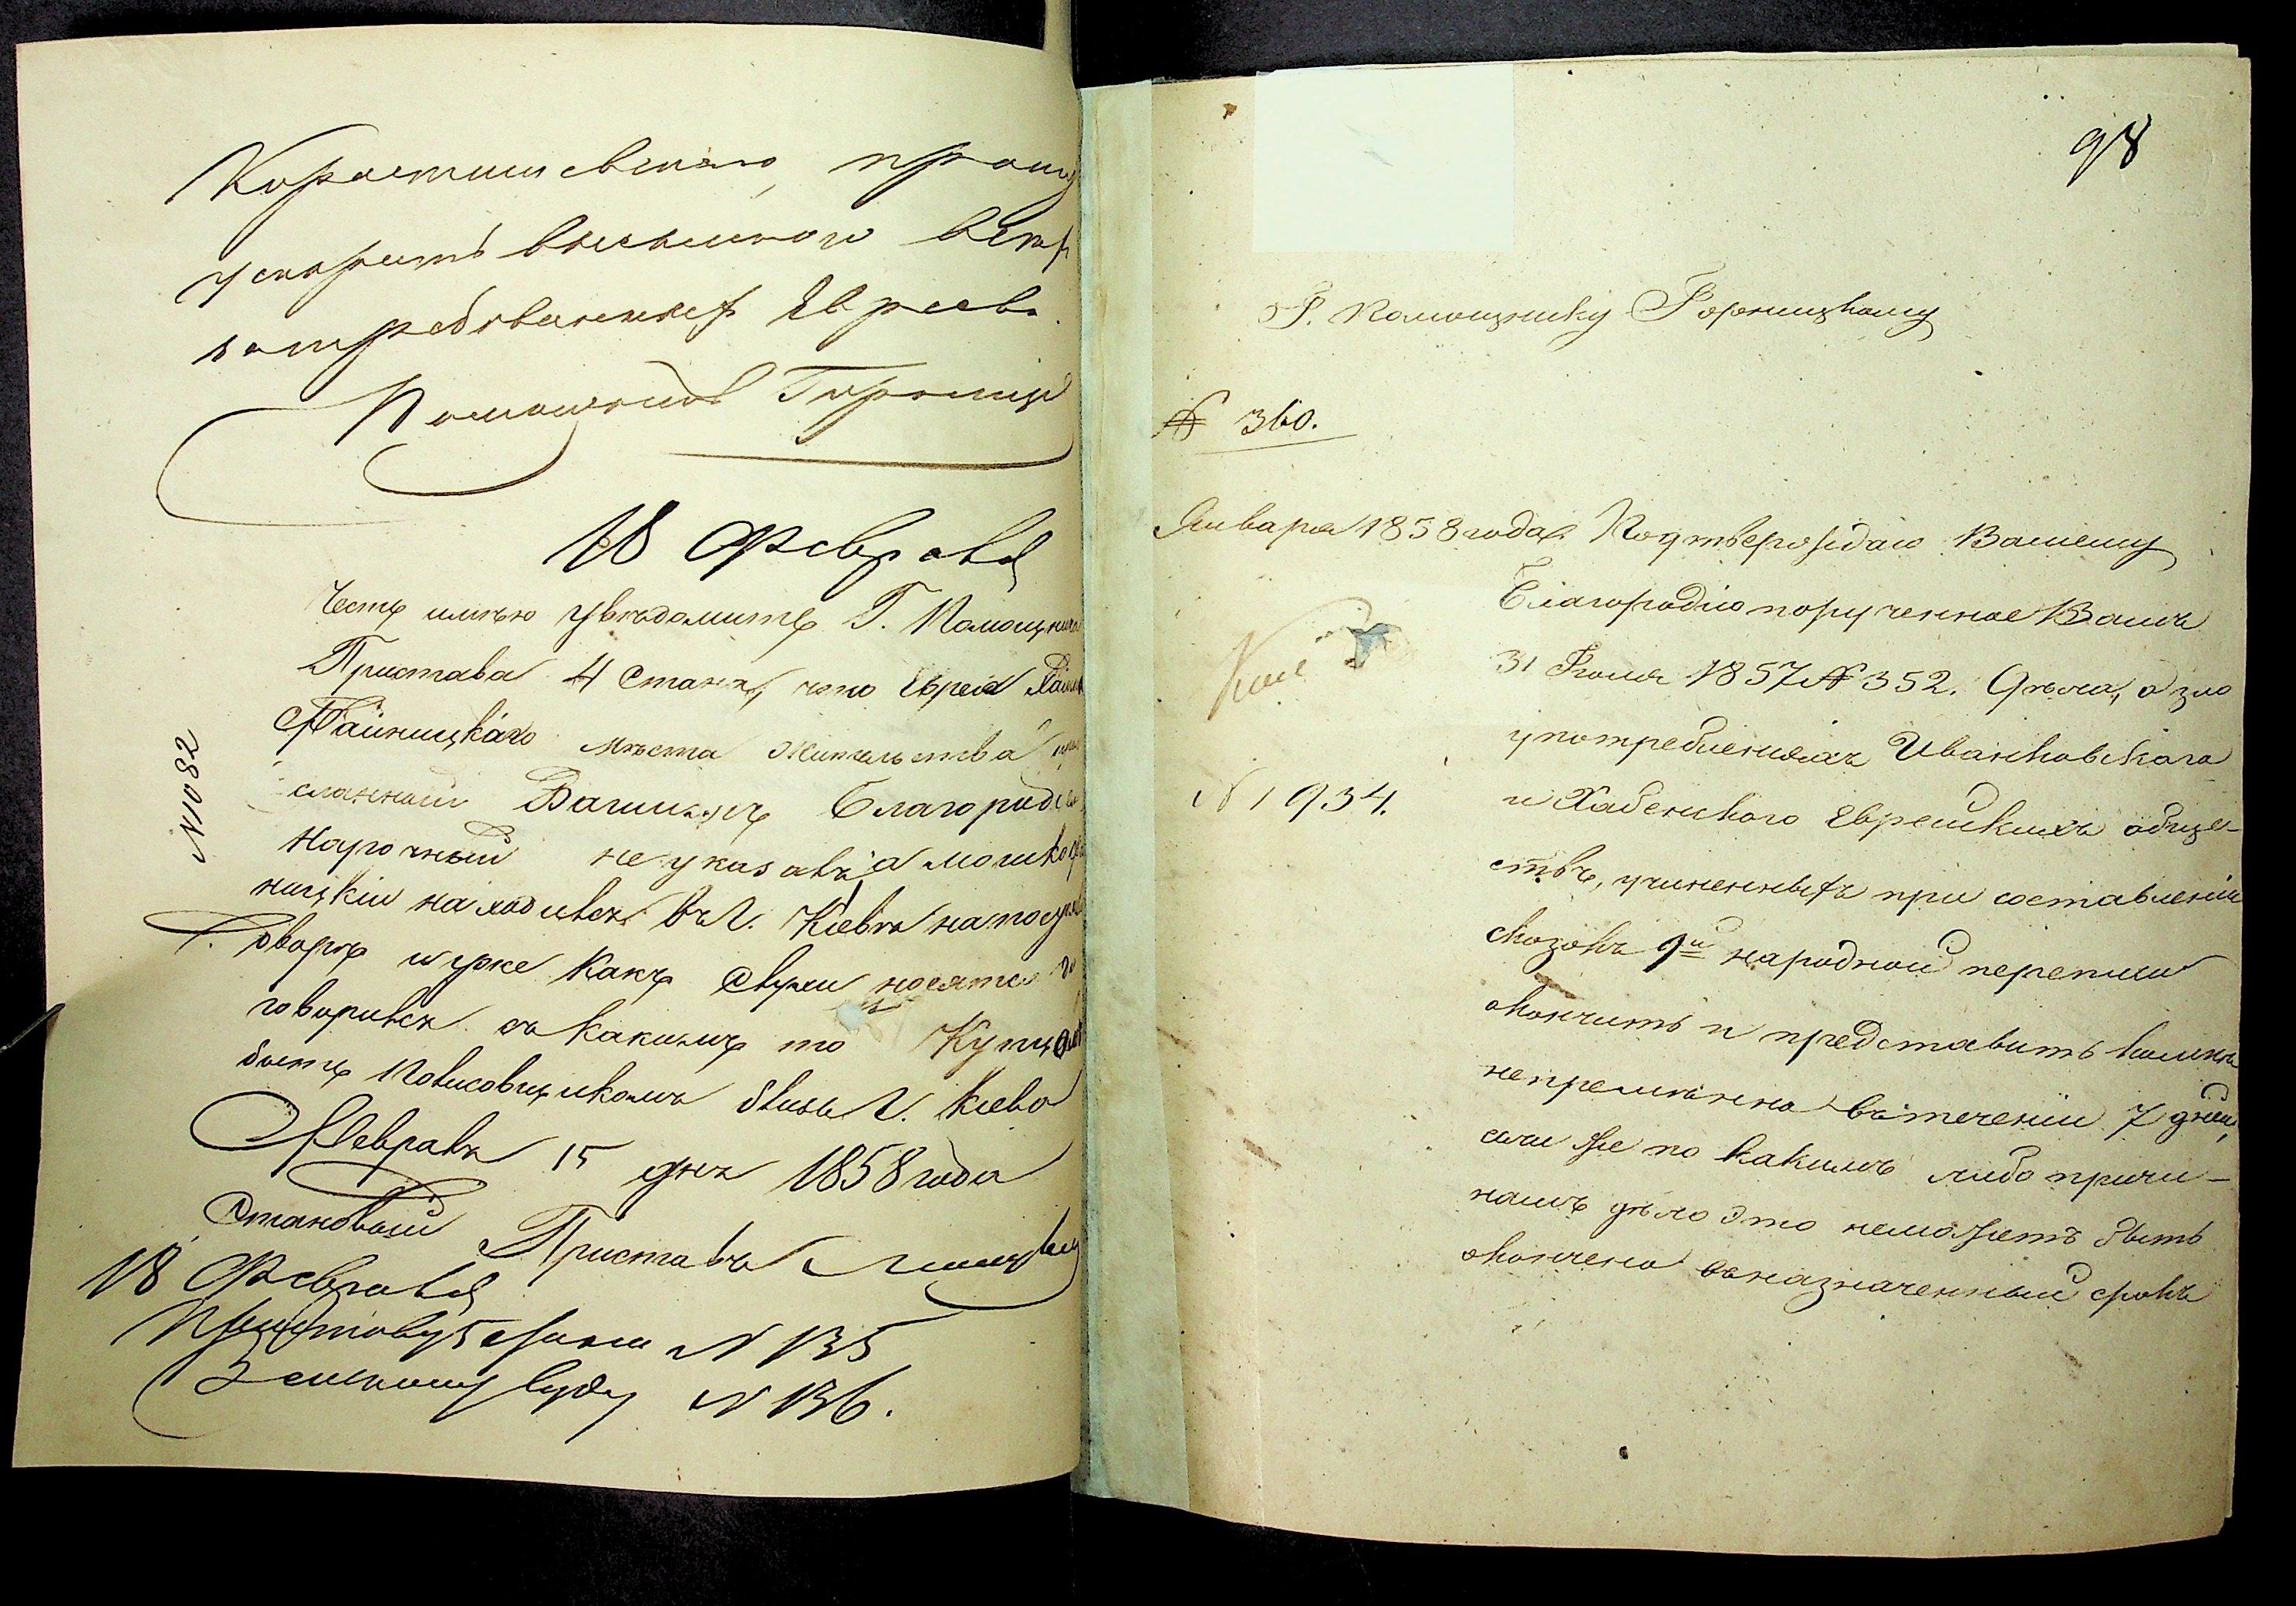 Коростишевскаго, прошу
ускорить высылкою всѣхъ
потребованныхъ Евреевъ.
Помощникъ Горниц
18 Февраля
Честь имѣю увѣдомить Г. Помощника
Пристава 4 Стана, что Еврея
Файницкаго мѣста жительства
сланный Вашимъ Благородіем
Нарочный не указалъ, а Мошко
ницкій находился въ г. Кіевѣ на
дворѣ и уже какъ слухи носятся до
говорился съ какимъ то Купцом
быть Повисовщикомъ близь г. Кіева
Февраля 15 дня 1858 года
Становый Приставъ
18 Февраля
Приставу 5 Стана N 135
Земскому Суду N 136.
N 1082
98
Г. Помощнику Горницкому
№ 360.
Января 1858 года Подтверждаю Вашему
Благородію порученное Вамъ
31 Іюля 1857 № 352. Дѣла, о зло
употребленіяхъ Иванковскаго
N 1934.
и Хабенскаго Еврейскихъ обще-
ствъ, учиненныхъ при составленіи
сказокъ 9й народной переписи
окончить и представить комнѣ
непремѣнно въ теченіи 7 дней,
если же по какимъ либо причи-
намъ дѣло это неможетъ быть
окончено въ назначенный срокъ